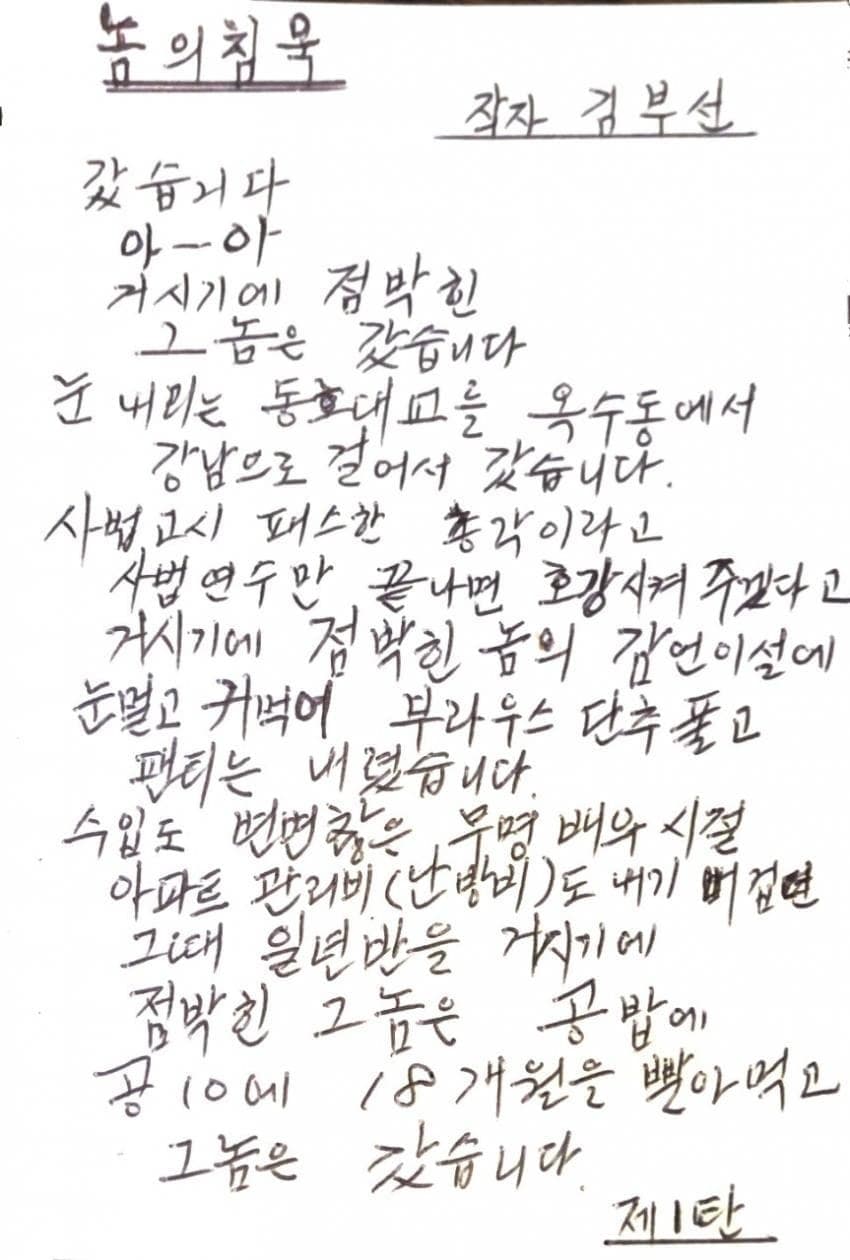 놈의침묵
작자 김부선
갔습니다
아ㅡ아
거시기에 점박힌
그놈은 갔습니다
눈 내리는 동호대교를 옥수동에서
강남으로 걸어서 갔습니다.
사법고시 패스한 총각이라고
사법연수만 끝나면 호강시켜 주겠다고
거시기에 점박힌 놈의 감언이설에
눈멀고 귀먹어 부라우스 단추 풀고
팬티는 내렸습니다.
수입도 변변찮은 무명 배우 시절
아파트 관리비(난방비)도 내기 버겁던
그때 일년반을 거시기에
점박힌 그놈은 공밥에
공10에 18개월을 빨아먹고
그놈은 갔습니다.
제1탄